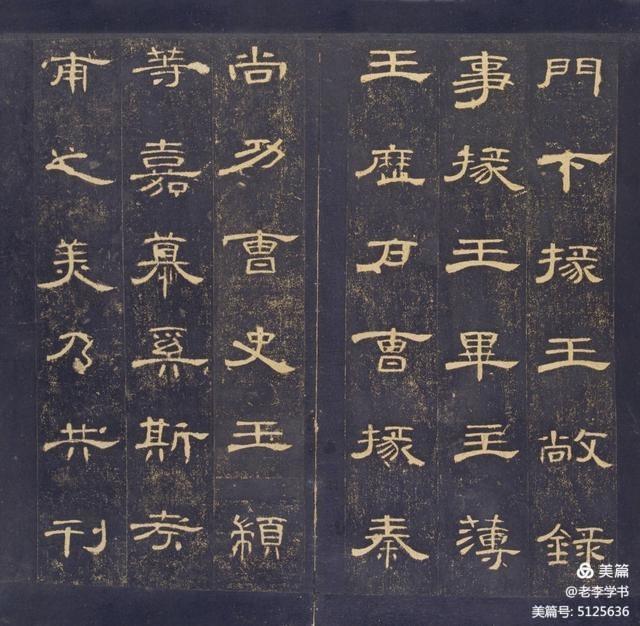 門下掾王敞錄
事掾王畢主薄
王歷戶曹掾秦
尚功曹史王顓
等嘉慕奚斯考
甫之美乃共刊
美篇
@老李学书
美篇号: 5125636